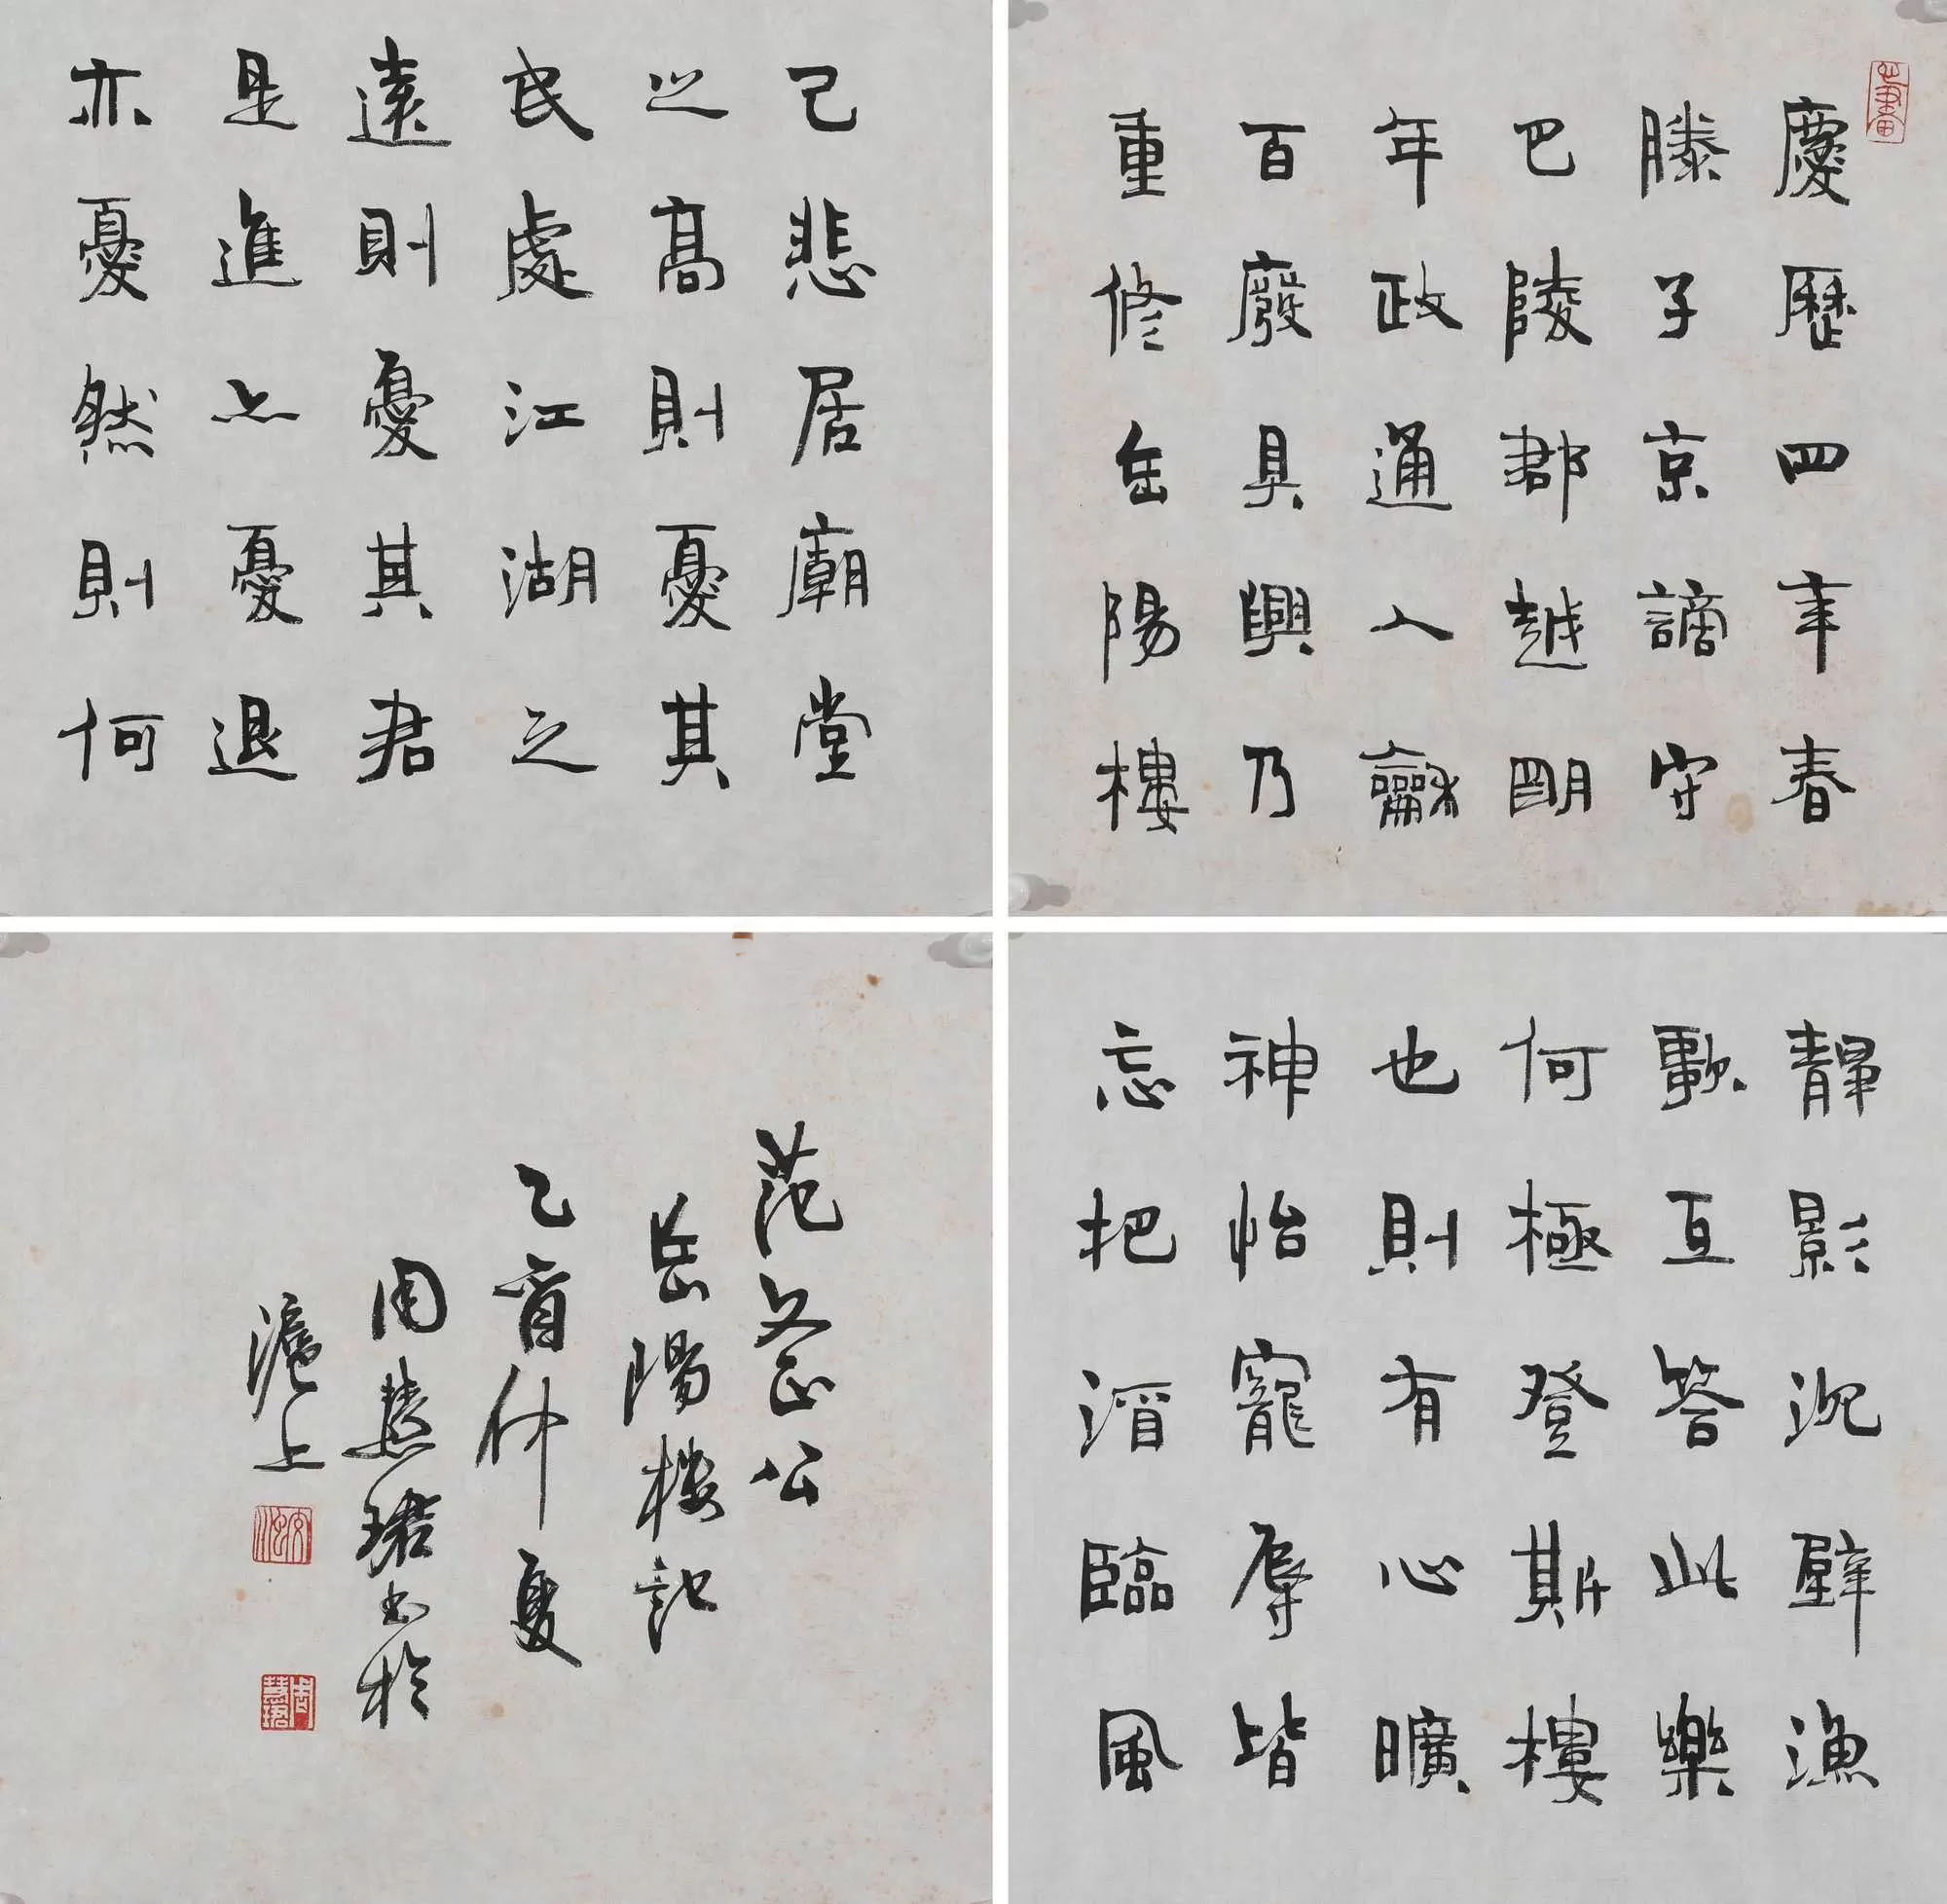 慶歷四年春
滕子京謫守
巴陵郡越明
年政通人龢
百廢具興乃
重修岳陽樓
靜影沉璧漁
歌互答此樂
何極登斯樓
也則有心曠
神怡寵辱皆
忘把酒臨風
己悲居廟堂
之高則憂其
民處江湖之
遠則憂其君
是進亦憂退
亦憂然則何
范文正公
岳陽樓記
乙酉仲夏
周慧珺書於
滬上
周慧珺